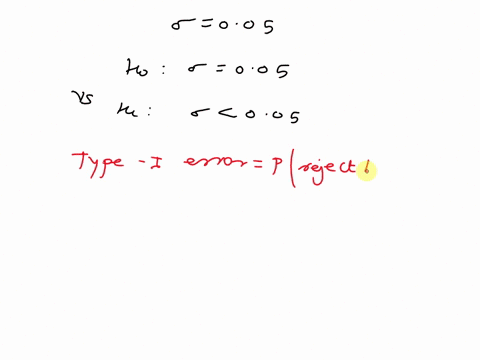 σ = 0.05
H₀ : σ = 0.05
vs
H₁ : σ < 0.05
Type - I error = P ( reject